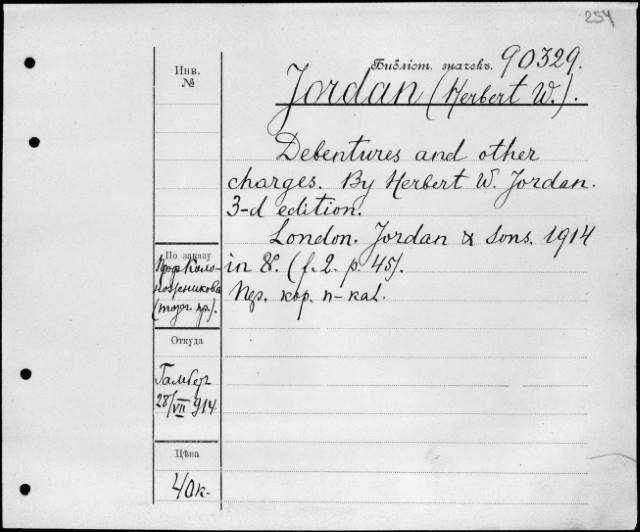 254
Библіот. значекъ. 90329.
Инв.
№
Jordan (Herbert W.).
Debentures and other
charges. By Herbert W. Jordan.
3-d edition.
London. Jordan & Sons. 1914
in 8º. (f. 2. p. 45).
По заказу
Проф Коло-
ножникова
(торг. пр.).
Откуда
28/VII 914
Цѣна
40к-